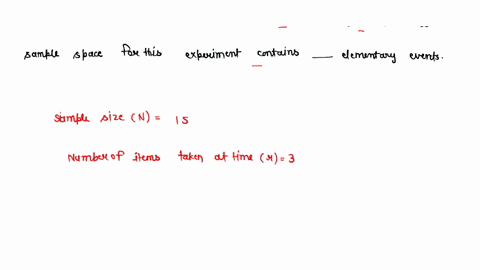 sample space for this experiment contains ___ elementary events.
sample size (N) = 15
Number of items taken at time (r) = 3